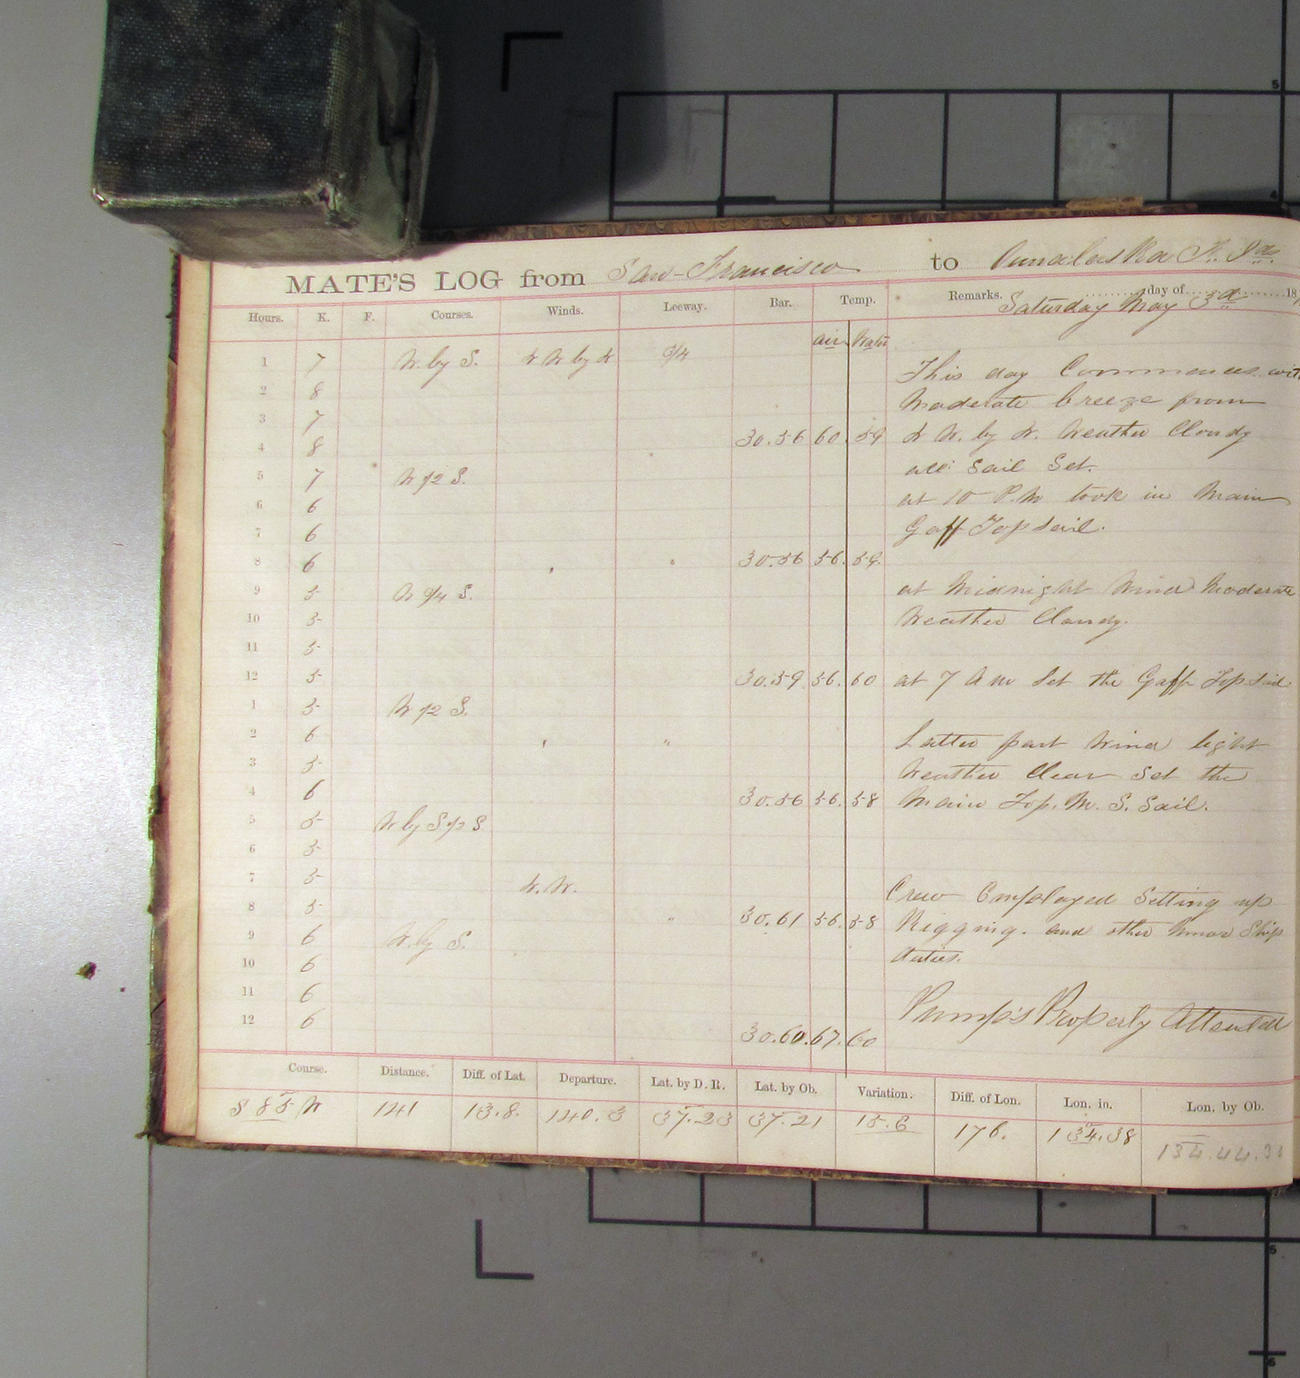 MATE'S LOG from San-Francisco to Ounalaska
Remarks. day of 18
Saturday May 3d
Hours. K. F. Courses. Winds. Leeway. Bar. Temp.
air Water
1 7 W. by S. N W by N 1/4 This day Commences with
2 8 Moderate breeze from
3 7
4 8 30.56 60. 59 N W. by N. Weather Cloudy
all Sail Set.
5 7 W 1/2 S.
6 6 at 10 P.M took in Main
7 6 Gaff Topsail.
8 6 " " 30.56 56. 59.
9 5 W 3/4 S. at Midnight Wind Moderate
10 5 Weather Cloudy.
11 5
12 5 30.59 56. 60 at 7 A m Set the Gaff Topsail
1 5 W 1/2 S.
2 6 " " Latter part Wind light
3 5 Weather Clear Set the
4 6 30.56 56. 58 Main Top. M. S. Sail.
5 5 W by S 1/2 S
6 5
7 5 N. W. Crew Employed Setting up
8 5 " 30.61 56. 58 Rigging. and other Ship
9 6 W. by S. duties.
10 6
11 6 Pump's Properly Attended
12 6 30.60. 67. 60
Course. Distance. Diff. of Lat. Departure. Lat. by D. R. Lat. by Ob. Variation. Diff. of Lon. Lon. in. Lon. by Ob.
S 85 W 141 13.8. 140.3 37.23 37.21 15.6 176. 134.38 134.44.